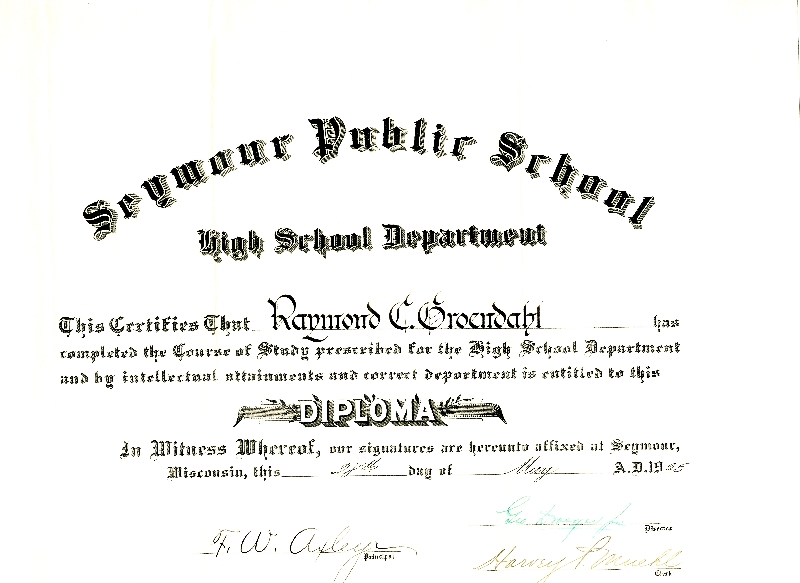 Seymour Public School
High School Department
This Certifies That Raymond C. Groendahl has
completed the Course of Study prescribed for the High School Department
and by intellectual attainments and correct deportment is entitled to this
DIPLOMA
In Witness Whereof, our signatures are hereunto affixed at Seymour,
Wisconsin, this day of May A.D. 19
Director
F. W. Axley
Principal
Harvey
Clerk